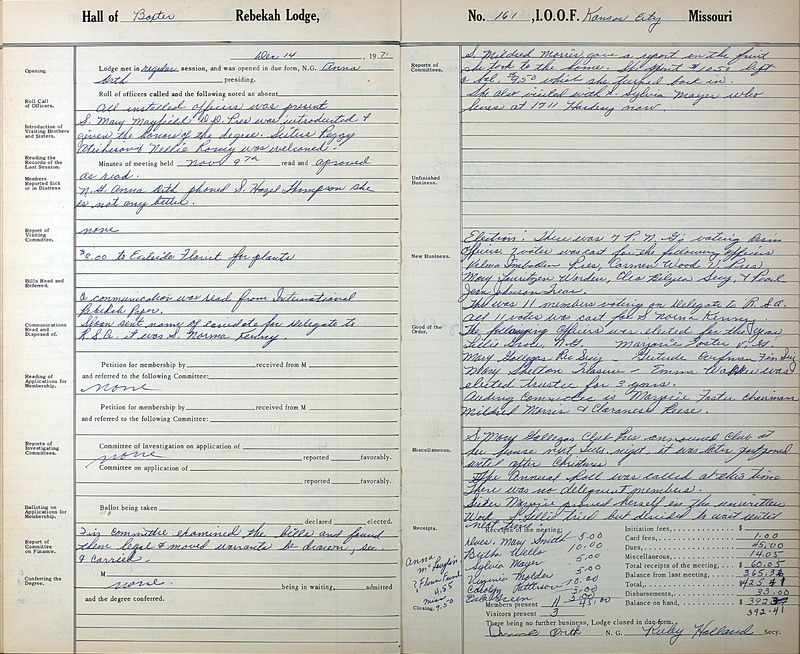 Hall of Baxter Rebekah Lodge,
Dec 14, 1971
Opening.
Lodge met in regular session, and was opened in due form, N.G. Anna
Orth presiding.
Roll Call
of Officers.
Roll of officers called and the following noted as absent
All installed officers was present
Introduction of
Visiting Brothers
and Sisters.
S. Mary Mayfield D.D. Pres was introduced &
given the honors of the degree. Sisters Peggy
Nellie was welcomed.
Reading the
Records of the
Last Session.
Minutes of meeting held Nov 9th read and aproved
as read.
Members
Reported Sick
or in Distress
N.G. Anna Orth phoned S. Hazel Thompson she
is not any better.
Report of
Visiting
Committee.
none
$8.00 to Eastside Florist for plants
Bills Read and
Referred.
A communication was read from International
Rebekah Paper.
Communications
Read and
Disposed of.
Sloan sent name of canidate for delegate to
R.S.A. it was S. Norma Kenny.
Reading of
Applications for
Membership.
Petition for membership by received from M
and referred to the following Committee:
none
Petition for membership by received from M
and referred to the following Committee:
Reports of
Investigating
Committees.
Committee of Investigation on application of
none reported favorably.
Committee on application of
reported favorably.
Balloting on
Applications for
Membership.
Ballot being taken
declared elected.
Report of
Committee
on Finance.
Fin committee examined the bills and found
them legal & moved warants be drawn, sec.
& carried.
Conferring the
Degree.
M
none. being in waiting, admitted
and the degree conferred.
No. 161, I.O.O.F. Kansas City Missouri
Reports of
Committees.
S. Mildred Morris gave a report on the fruit
she took to the Home. She spent $10.50
bal. $9.50 which she turned back in.
She also visited with S. Sylvia Mayer who
lives at 1711 Hardesy now.
Unfinished
Business.
Election: There was 7 P.N.G's voting Assm
Officers 7 votes was cast for the following officers
New Business.
Velma Imboden Pres, Carmen Wood V. Pres,
Mary Warden, Cleo Secy, & Pearl
Jean Johnson Treas.
There was 11 members voting on Delegate to R.S.A.
All 11 votes was cast for S Norma Kenny.
Good of the
Order.
The following Officers was elected for the year
N.G. Marjorie Foster V.G.
Mary Gallegos Rec Secy - Gertrude Fin Secy
Mary Shelton Treasure - Emma was
elected trustee for 3 years.
Auding Committee is Marjorie Foster chairman
Mildred Morris & Claranese Reese.
Miscellaneous.
S Mary Gallegos Club Pres announced Club at
her house next Tues. night, it was later postponed
until after Christmas
The Annual roll was called at this time
There was no deliquent members.
Sister Marjorie proved herself in the unwritten
Work. tried but decided to wait until
next time.
Receipts.
Receipts of the meeting:
Dues. Mary Smith 5.00
Wells 10.00
Sylvia Mayer 5.00
Virginia Molder 5.00
Carolyn Patterson 10.00
Green
Anna
4.55
misc
9.50
Initiation fees, $
Card fees, 1.00
Dues, 45.00
Miscellaneous, 14.05
Total receipts of the meeting, $ 60.05
Balance from last meeting, 365.36
Total, $425.41
Disbursements, 33.00
Balance on hand, $ 392
392.41
Members present 11
Visitors present 3
Closing,
There being no further business, Lodge closed in due form.
Orth N. G. Ruby Holland Secy.